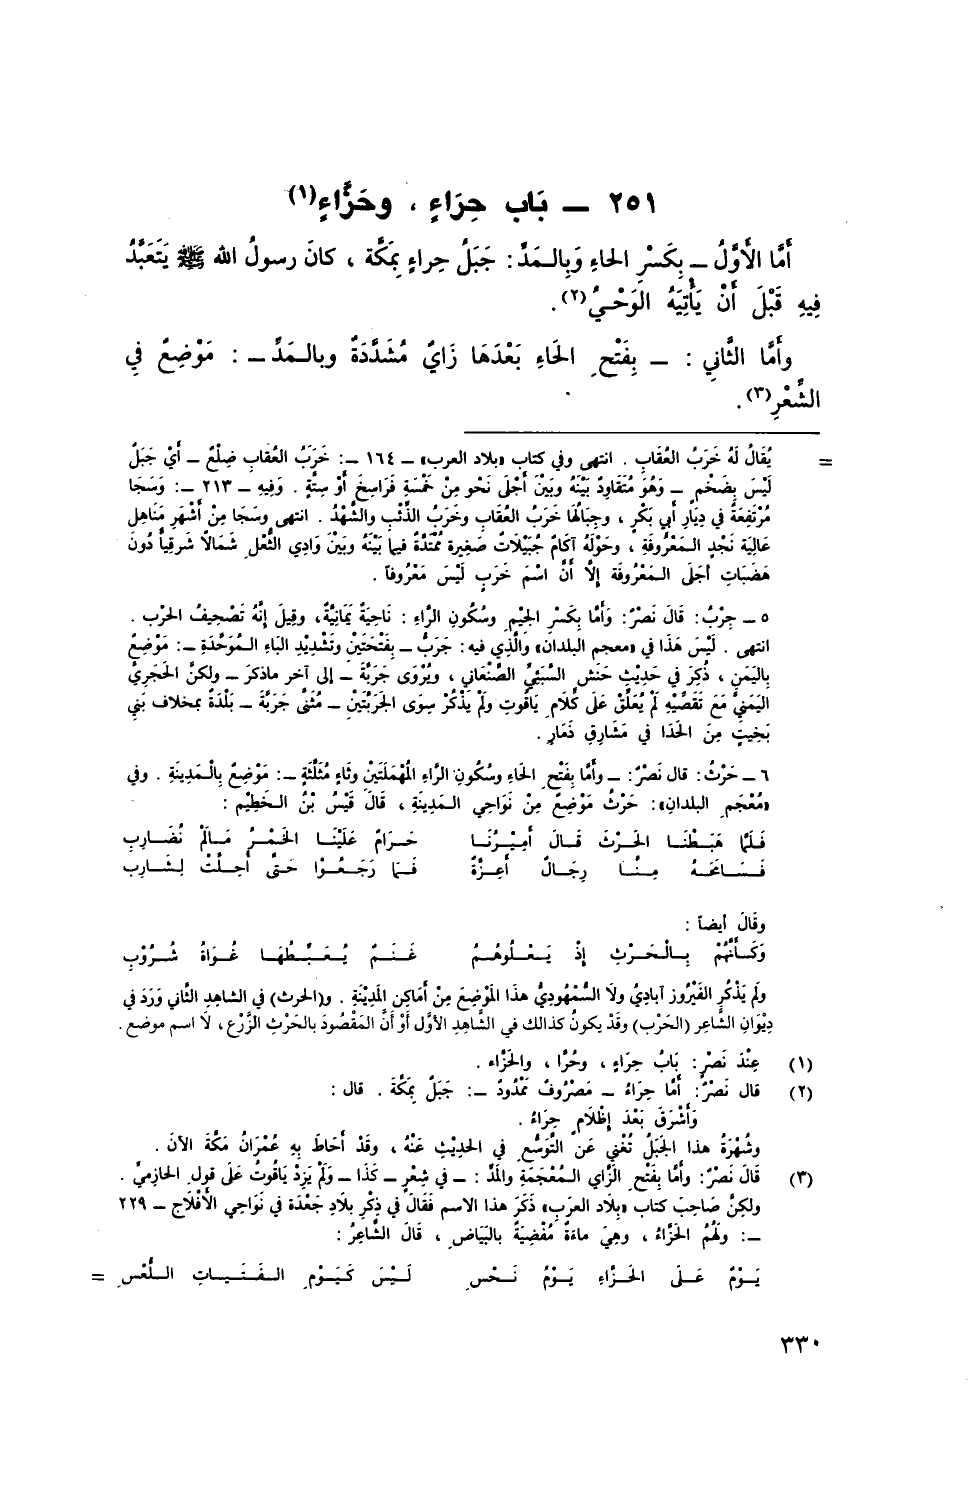 ٢٥١ ــ بَاب حِرَاءٍ ، وحَزَّاءٍ(١)
أَمَّا الْأَوَّلُ ــ بِكَسْرِ الحاءِ وَبِالـمَدِّ: جَبَلُ حِراءٍ بِمَكَّة ، كانَ رسولُ الله ﷺ يَتَعَبَّدُ
فِيهِ قَبْلَ أَنْ يَأْتِيَهُ الوَحْيُ(٢).
وأَمَّا الثَّاني : ــ بِفَتْحِ الحَاءِ بَعْدَهَا زَايٌ مُشَدَّدَةٌ وبالـمَدِّ ــ : مَوْضِعٌ فِي
الشِّعْرِ(٣).
= يُقَالُ لَهُ خَرَبُ العُقَابِ . انتهى وفي كتاب «بلاد العرب» ــ ١٦٤ ــ: خَرَبُ العُقَابِ ضِلْعٌ ــ أَيْ جَبَلٌ
لَيْسَ بِضَخْمٍ ــ وَهُوَ مُتَقَاوِدٌ بَيْنَهُ وَبَيْنَ أَجَلَى نَحْوٍ مِنْ خَمْسَةِ فَرَاسِخَ أَوْ سِتَّةٍ . وَفِيهِ ــ ٢١٣ ــ: وَسَجَا
مُرْتَفِعَةٌ في دِيَارِ أَبي بَكْرٍ ، وجِبَالُهَا خَرَبُ العُقَابِ وخَرَبُ الذِّئْبِ والشُّهْدُ . انتهى وسَجَا مِنْ أَشْهَرِ مَنَاهِلِ
عَالِيَةِ نَجْدٍ الـمَعْرُوفَةِ ، وحَوْلَهُ آكَامٌ جُبَيْلَاتٌ صَغِيرة مُمْتَدَّةٌ فيما بَيْنَهُ وبَيْنَ وَادِي الثُّعْلِ شَمَالاً شرقياً دُونَ
هَضَبَاتِ أَجَلَى الـمَعْرُوفَة إِلاَّ أَنَّ اسْمَ خَرَبٍ لَيْسَ مَعْرُوفاً .
٥ ــ جِرْبُ: قَالَ نَصْرٌ: وَأَمَّا بِكَسْرِ الجِيْمِ وسُكُونِ الرَّاءِ : نَاحِيَةٌ يَمَانِيَّةٌ، وقِيلَ إِنَّهُ تَصْحِيفُ الحَرْب .
انتهى . لَيْسَ هَذَا في «معجم البلدان» والَّذِي فيه: جَرَبُّ ــ بِفَتْحَتَيْنِ وتَشْدِيْدِ البَاءِ الـمُوَحَّدَةِ ــ: مَوْضِعٌ
بِاليَمَنِ ، ذُكِرَ في حَدِيْثِ حَنَشِ السَّبَئِيِّ الصَّنْعَاني ، ويُرْوَى جَرَبَّة ــ إلى آخر ماذكرَ ــ ولكنَّ الحَجَرِيَّ
اليَمَنِيَّ مَعَ تَقَصِّيْهِ لَمْ يُعَلِّقْ عَلَى كَلَامِ يَاقُوتٍ ولَمْ يَذْكُرْ سِوَى الجَرَبَّتَيْنِ ــ مُثَنَّى جَرَبَّة ــ بَلْدَةٌ بمخلاف بَنِي
بَخِيتٍ مِنَ الحَدَا في مَشَارِقِ ذَمَارِ .
٦ ــ حَرْثُ: قال نَصْرٌ: ــ وأَمَّا بِفَتْحِ الحَاءِ وسُكُونِ الرَّاءِ الْمُهْمَلَتَيْنِ وثَاءٍ مُثَلَّثَةٍ ــ: مَوْضِعٌ بِالْـمَدِينَةِ . وفي
«مُعْجَمِ البلدانِ»: حَرْثُ مَوْضِعٌ مِنْ نَوَاحِي الـمَدِينَةِ ، قَالَ قَيْسُ بْنُ الـخَطِيْمِ :
فَلَمَّا هَبَـطْنَـا الحَـرْثَ قـالَ أَمِيْـرُنَـا حَـرَامٌ عَلَيْنَـا الخَمْـرُ مَـالَمْ نُضَـارِبِ
فَـسَـامَحَـهُ مِنَّـا رِجَـالٌ أَعِـزَّةٌ فَـمَا رَجَـعُـوْا حَتَّى أُحِـلَّتْ لِشَـارِبِ
وقَالَ أيضاً :
وَكَـأَنَّهُمْ بِـالْـحَـرْثِ إِذْ يَـعْـلُوهُـمُ غَـنَـمٌ يُـعَـبِّـطُهَـا غُـوَاةُ شُـرُوْبِ
ولَمْ يَذْكُرِ الفَيْرُوز آبادِيُّ ولَا السَّمْهُودِيُّ هذا المَوْضِعَ مِنْ أَمَاكِنِ المَدِيْنَةِ . و(الحرث) في الشاهِدِ الثَّاني وَرَدَ في
دِيْوَانِ الشَّاعِرِ (الحَرْبِ) وقَدْ يكونُ كذالك في الشَّاهِدِ الأَوَّلِ أَوْ أَنَّ المَقْصُودَ بالحَرْثِ الزَّرْع ، لَا اسم موضع .
(١) عِنْدَ نَصْرٍ: بَابُ حِرَاءٍ ، وحُرَّا ، والحَزَّاء .
(٢) قال نَصْرٌ: أَمَّا حِرَاءُ ــ مَصْرُوفٌ مَمْدُودٌ ــ: جَبَلٌ بِمَكَّةَ . قال :
وَأَشْرَقَ بَعْدَ إِظْلَامٍ حِرَاءُ .
وشُهْرَةُ هذا الجَبَلِ تُغْنِي عَنِ التَّوَسُّعِ في الحَدِيْثِ عَنْهُ ، وقَدْ أَحَاطَ بِهِ عُمْرَانُ مَكَّةَ الآنَ .
(٣) قَالَ نَصْرٌ: وأَمَّا بِفَتْحِ الزَّايِ الـمُعْجَمَةِ والمَدِّ : ــ في شِعْرٍ ــ كَذَا ــ ولَمْ يَزِدْ يَاقُوتُ عَلَى قولِ الحَازِمِيِّ .
ولكِنَّ صَاحِبَ كتاب «بِلاد العرَبِ» ذَكَرَ هذا الاسم فَقَالَ في ذِكْرِ بِلَادِ جَعْدَةَ في نَوَاحِي الْأَفْلَاجِ ــ ٢٢٩
ــ: ولَهُمُ الحَزَّاءُ ، وهِيَ مَاءَةٌ مُفْضِيَةٌ بِالبَيَاضِ ، قَالَ الشَّاعِرُ :
يَـوْمٌ عَـلَى الحَـزَّاءِ يَـوْمُ نَـحْسِ لَـيْسَ كَيَـوْمِ الـفَـتَـيـاتِ الـلُّعْسِ =
٣٣٠